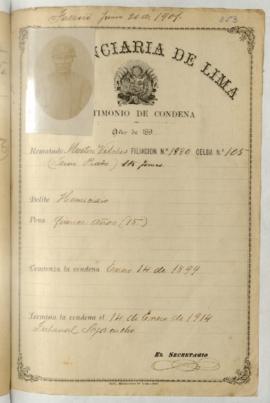 Falleció Junio 20 de 1901.
253
NCIARIA DE LIMA
TIMONIO DE CONDENA
Año de 189
Rematado FILIACION N.º 1880 CELDA N.º 105
Delito Homicidio
Pena Quince años (15)
Comienza la condena Enero 14 de 1899
Termina la condena el 14 de Enero de 1914
Tribunal Ayacucho
EL SECRETARIO